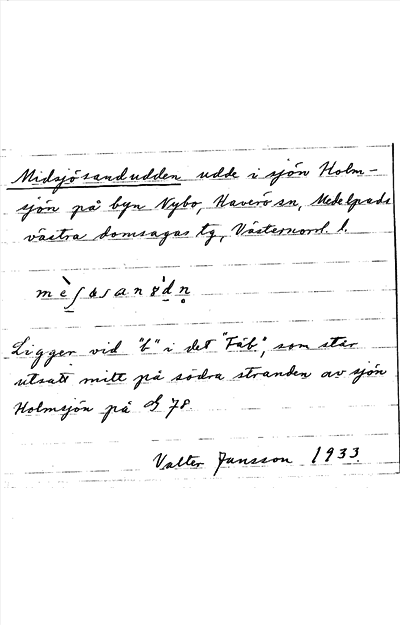 Midsjösandudden udde i sjön Holm-
sjön på byn Nybo, Haverö sn, Medelpads
västra domsagas tg, Västernorrl. l.
Ligger vid "b" i det "Fäb", som står
utsatt mitt på södra stranden av sjön
Holmsjön på G 78.
Valter Jansson 1933.